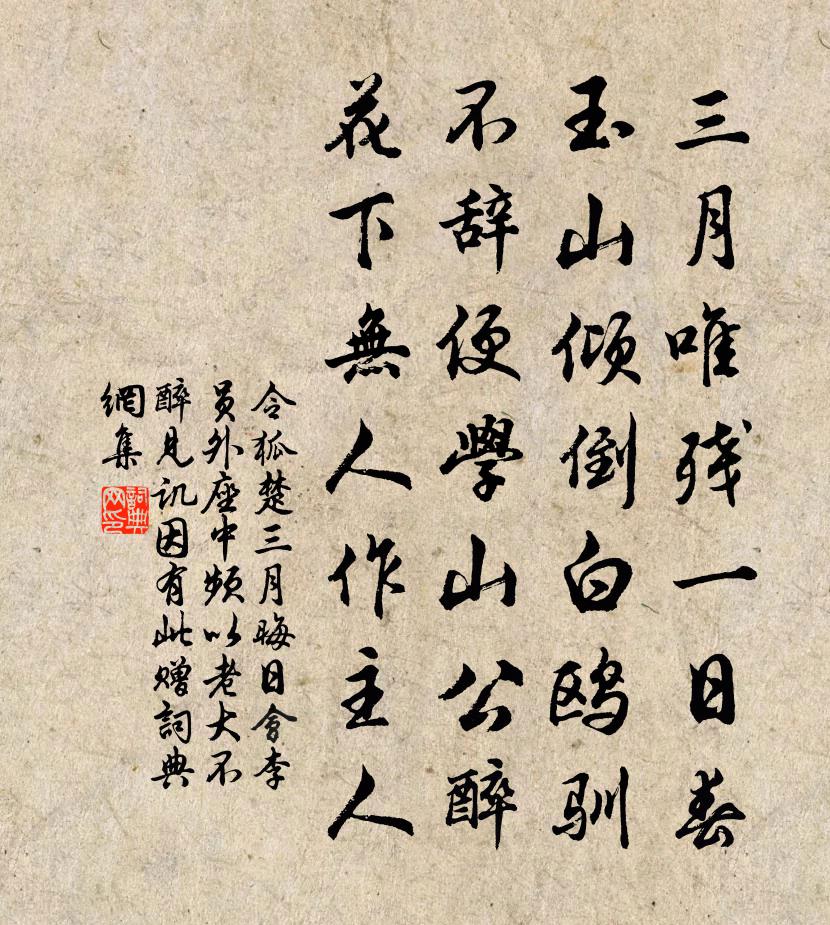 三月唯残一日春
玉山倾倒白鸥驯
不辞便學山公醉
花下無人作主人
令狐楚三月晦日會李
員外座中频以老大不
醉見讥因有此赠詞典
網集
詞典网印